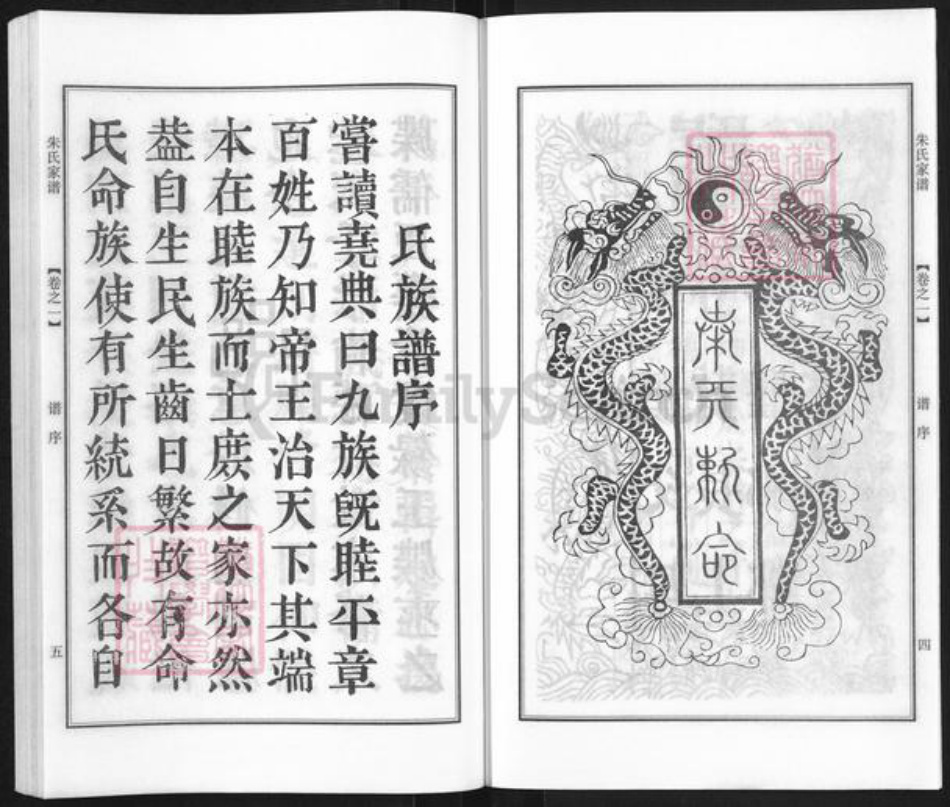 朱氏家谱
【卷之一】
谱序
四
奉天勅命
氏族譜序
嘗讀堯典曰九族旣睦平章
百姓乃知帝王治天下其端
本在睦族而士庶之家亦然
葢自生民生齒日繁故有命
氏命族使有所統系而各自
朱氏家谱
【卷之一】
谱序
五
FamilySearch